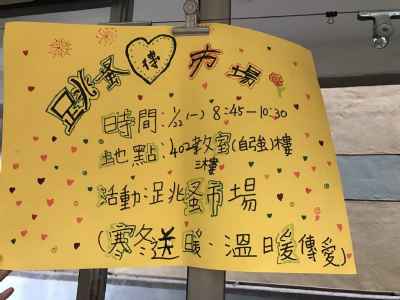 跳蚤 市場
時間:1/22(一) 8:45－10:30
地點:402教室(自強)樓
三樓
活動:跳蚤市場
(寒冬送暖、溫暖傳愛)